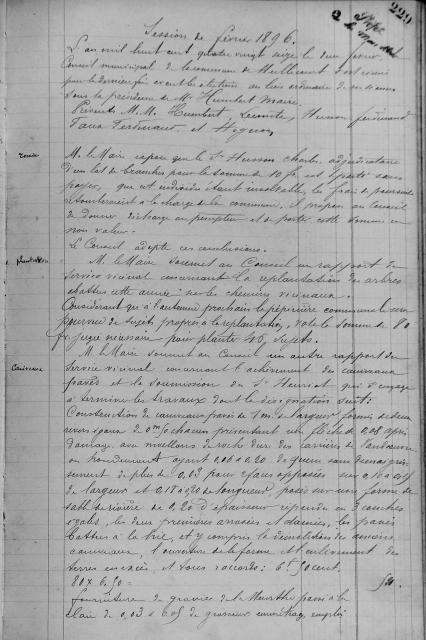 229
Session de février 1896.
L'an mil huit cent quatre vingt seize le deux février
Conseil municipal de la commune de s'est réuni
pour la dernière fois avant les élections au lieu ordinaire de ses séances
sous la présidence de Mr Humbert Maire.
Présents M.M. Humbert, Lecomte, Husson ferdinand
Ferdinand et
M. le Maire expose que le Sr Husson Charles adjudicataire
d'un lot de branches pour la somme de 10 fr. est parti sans
payer, que cet individu étant insolvable les frais de poursuite
retomberaient à la charge de la commune, il propose au Conseil
de donner décharge au percepteur et de porter cette somme en
non valeur.
Le Conseil adopte ces conclusions.
plantation
M. le Maire soumet au Conseil un rapport du
Service vicinal concernant la replantation des arbres
abattus cette année sur les chemins vicinaux.
Considérant qu'à l'automne prochain la pépinière communale sera
pourvue de sujets propres à la replantation, vote la somme de 80
fr. jugée nécessaire pour planter 40 sujets.
Caniveaux
M. le Maire soumet au Conseil un autre rapport du
Service vicinal concernant l'achèvement des caniveaux
pavés et la soumission du Sr Henriot qui s'engage
à terminer les travaux dont la désignation suit:
Construction de caniveaux pavés de 1m de largeur formés de deux
revers égaux de chacun présentant une flèche de 0,08 après
damage, aux moellons de roche dur des carrières de
ou ayant 0,16 à 0,20 de queue sans
de plus de 0,03 pour 2 faces opposées sur 0,10 à 0,15
de largeur et 0,18 à 0,20 de longueur, posés sur une forme de
sable de rivière de 0,20 d'épaisseur répandu en 3 couches
égales, les deux premières arrosées et damées, les pavés
battus à la hie, et y compris la démolition des anciens
caniveaux, l'ouverture de la forme et l'enlèvement des
terres en excès, et vieux raccords: 6f 50 cent.
80 x 6.50 =
520.
fourniture de gravier de la Meurthe passé à la
claie de 0,03 à 0,05 de grosseur, emploi